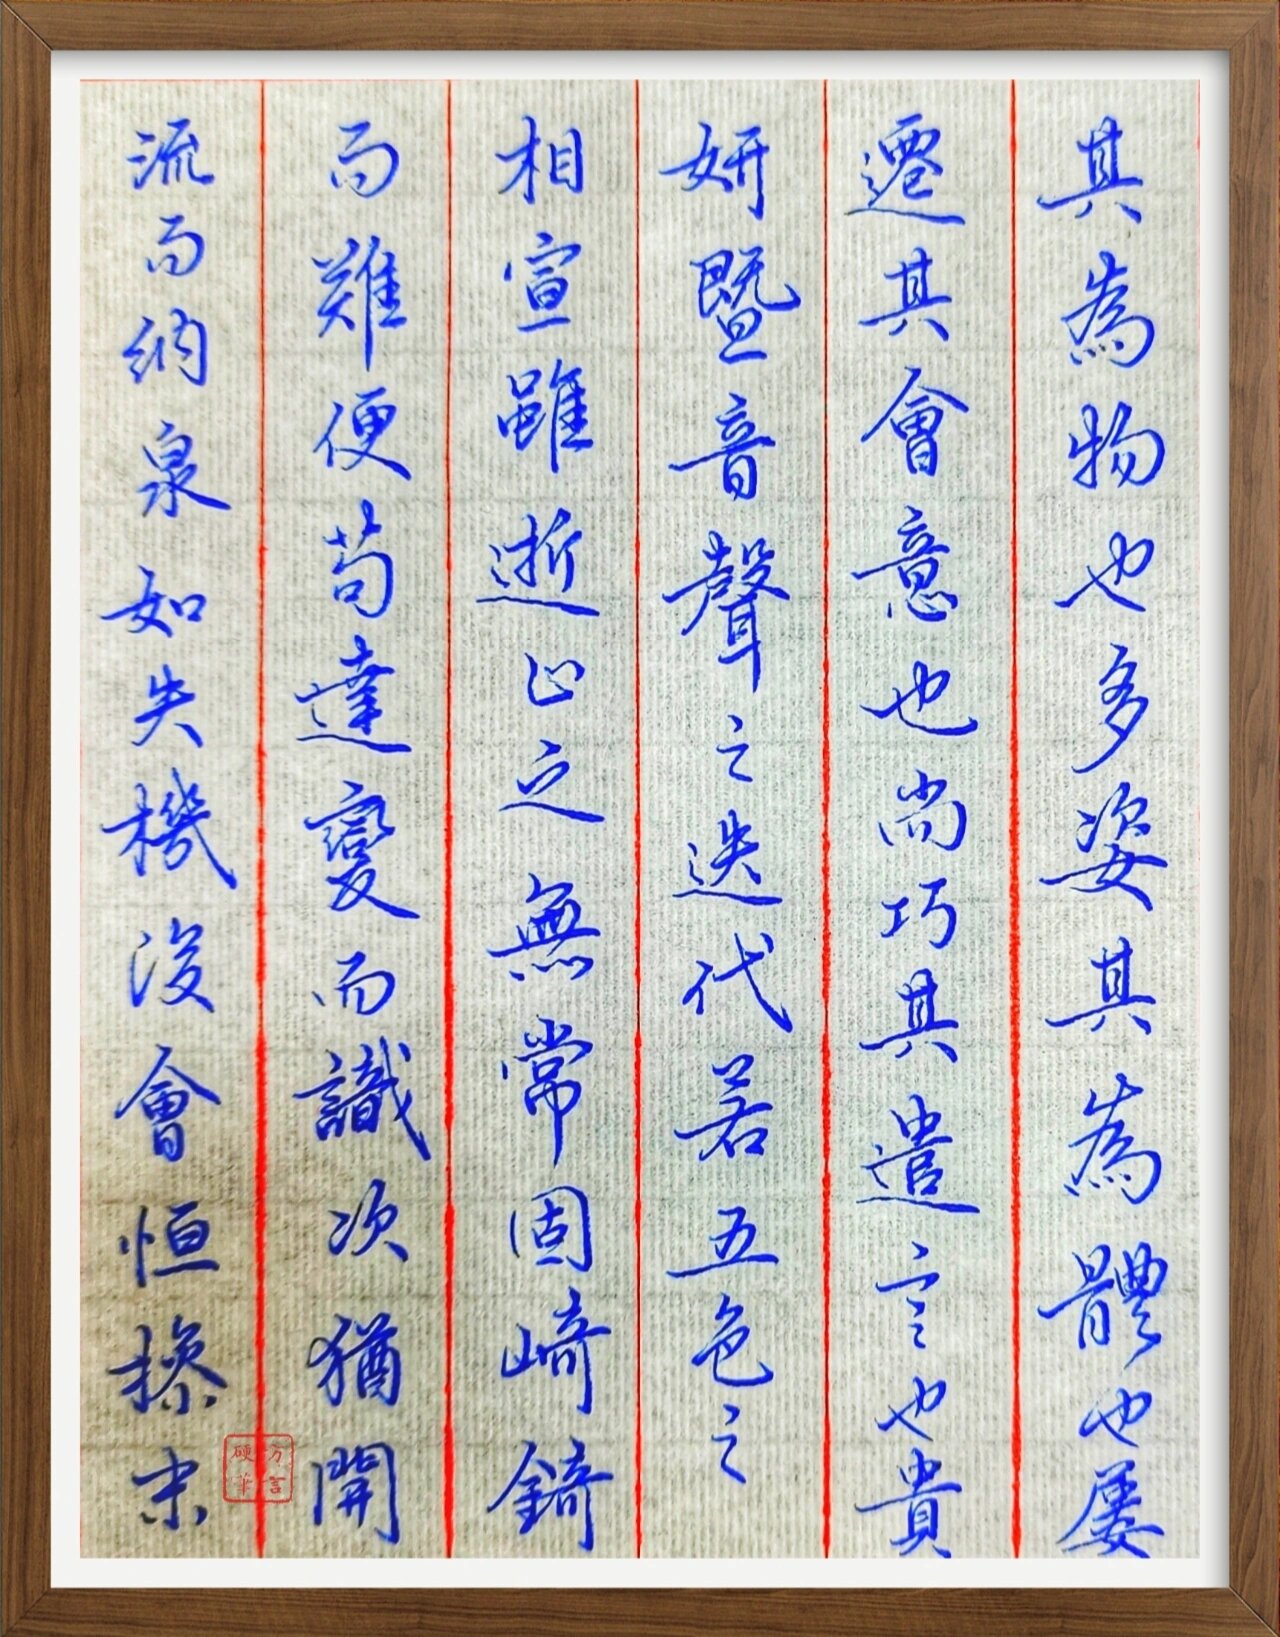 其為物也多姿其為體也屢
遷其會意也尚巧其遣言也貴
妍暨音聲之迭代若五色之
相宣雖逝止之無常固崎錡
而難便苟達變而識次猶開
流而納泉如失機後會恒操末
方言硬筆